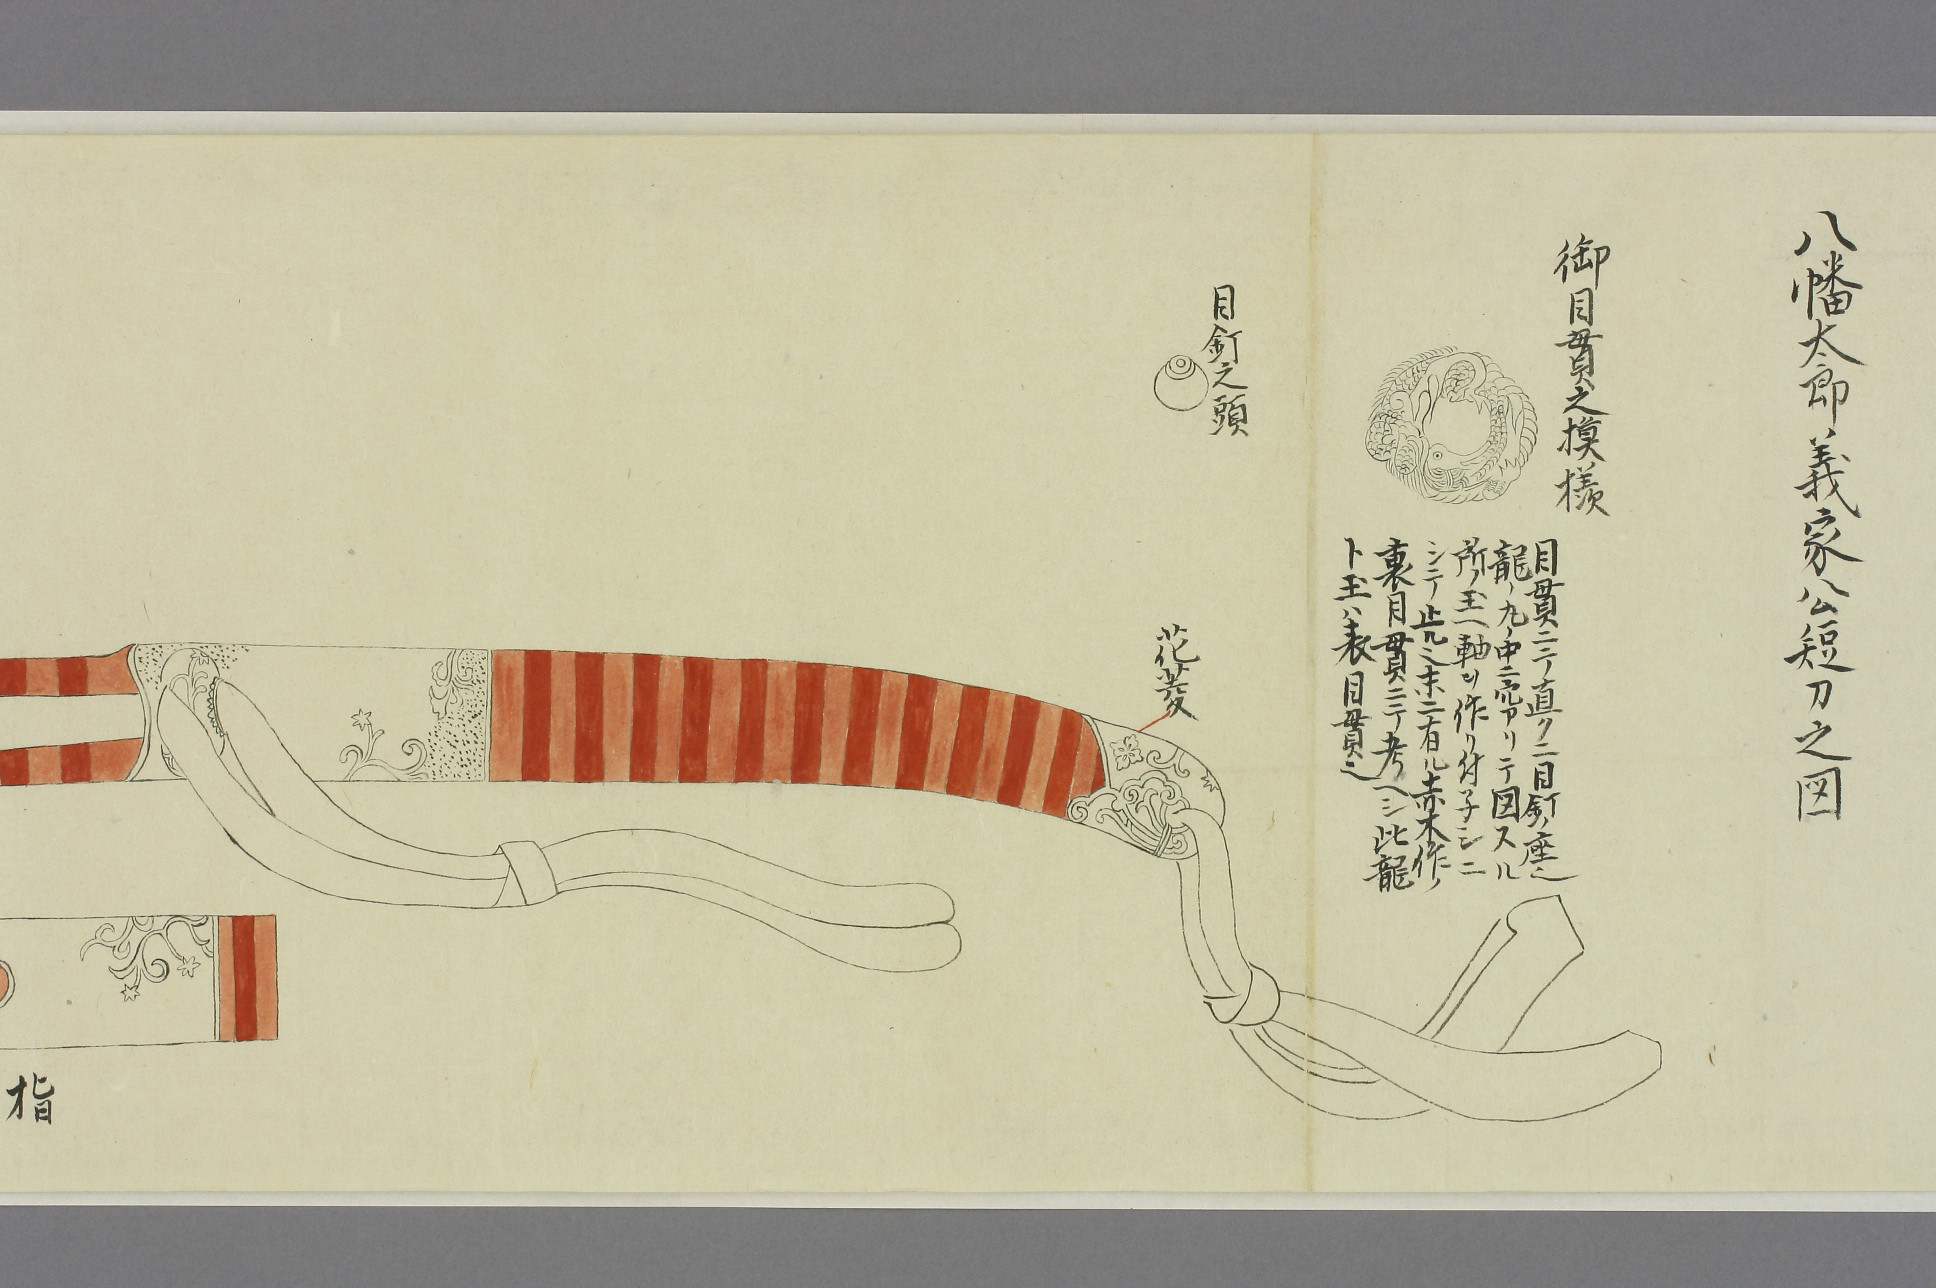 八幡太郎義家公短刀之図
御目貫之摸様
目貫ニテ直クニ目釘ノ座也
龍ノ丸ノ中ニ穴アリテ図スル
所ノ玉ヘ軸ヲ作リ付子シニ
シテ止ル也末ニ有ル赤木作ノ
裏目貫ニテ考ヘシ此龍
ト玉ハ表目貫也
目釘之頭
花菱
指